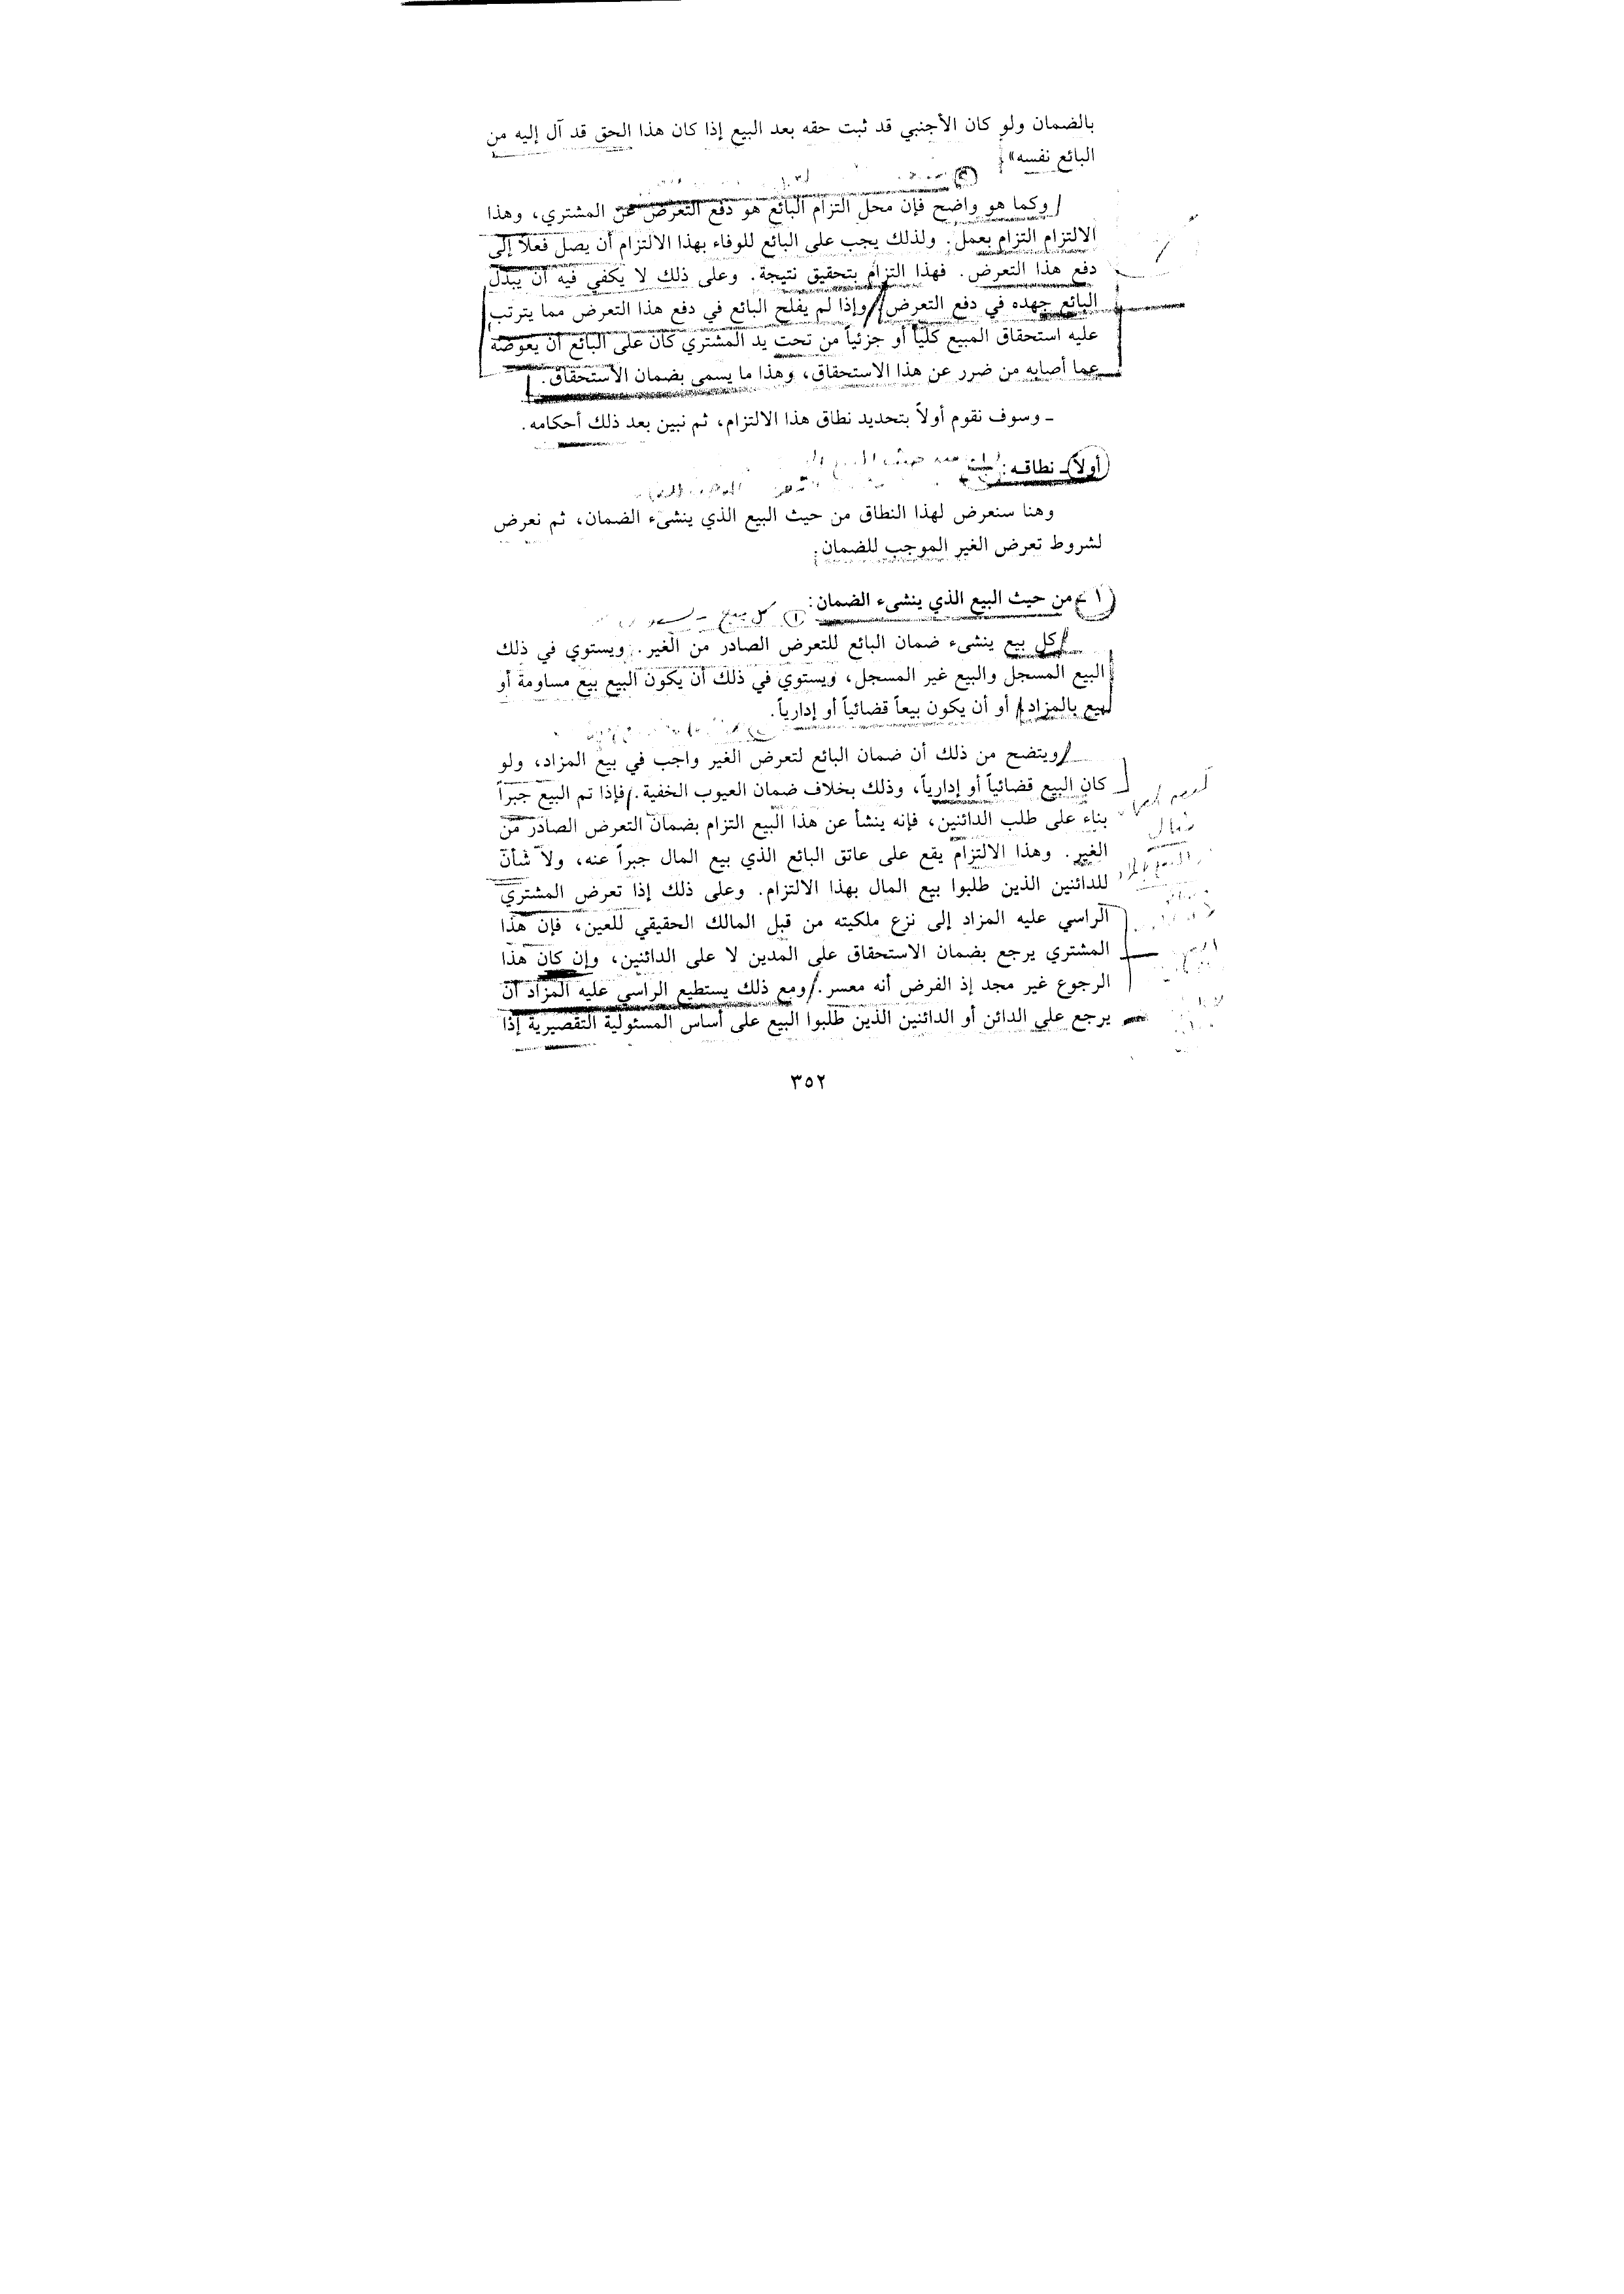 بالضمان ولو كان الأجنبي قد ثبت حقه بعد البيع إذا كان هذا الحق قد آل إليه من
البائع نفسه»
وكما هو واضح فإن محل التزام البائع هو دفع التعرض عن المشتري، وهذا
الالتزام التزام بعمل. ولذلك يجب على البائع للوفاء بهذا الالتزام أن يصل فعلاً إلى
دفع هذا التعرض. فهذا التزام بتحقيق نتيجة. وعلى ذلك لا يكفي فيه أن يبذل
البائع جهده في دفع التعرض وإذا لم يفلح البائع في دفع هذا التعرض مما يترتب
عليه استحقاق المبيع كلياً أو جزئياً من تحت يد المشتري كان على البائع أن يعوضه
عما أصابه من ضرر عن هذا الاستحقاق، وهذا ما يسمى بضمان الاستحقاق.
ـ وسوف نقوم أولاً بتحديد نطاق هذا الالتزام، ثم نبين بعد ذلك أحكامه.
أولاً ـ نطاقه:
وهنا سنعرض لهذا النطاق من حيث البيع الذي ينشىء الضمان، ثم نعرض
لشروط تعرض الغير الموجب للضمان:
١ ـ من حيث البيع الذي ينشىء الضمان:
كل بيع
كل بيع ينشىء ضمان البائع للتعرض الصادر من الغير. ويستوي في ذلك
البيع المسجل والبيع غير المسجل، ويستوي في ذلك أن يكون البيع بيع مساومة أو
بيع بالمزاد أو أن يكون بيعاً قضائياً أو إدارياً.
ويتضح من ذلك أن ضمان البائع لتعرض الغير واجب في بيع المزاد، ولو
كان البيع قضائياً أو إدارياً، وذلك بخلاف ضمان العيوب الخفية. فإذا تم البيع جبراً
بناء على طلب الدائنين، فإنه ينشأ عن هذا البيع التزام بضمان التعرض الصادر من
الغير. وهذا الالتزام يقع على عاتق البائع الذي بيع المال جبراً عنه، ولا شأن
للدائنين الذين طلبوا بيع المال بهذا الالتزام. وعلى ذلك إذا تعرض المشتري
الراسي عليه المزاد إلى نزع ملكيته من قبل المالك الحقيقي للعين، فإن هذا
المشتري يرجع بضمان الاستحقاق على المدين لا على الدائنين، وإن كان هذا
الرجوع غير مجد إذ الفرض أنه معسر. ومع ذلك يستطيع الراسي عليه المزاد أن
يرجع على الدائن أو الدائنين الذين طلبوا البيع على أساس المسئولية التقصيرية إذا
٣٥٢